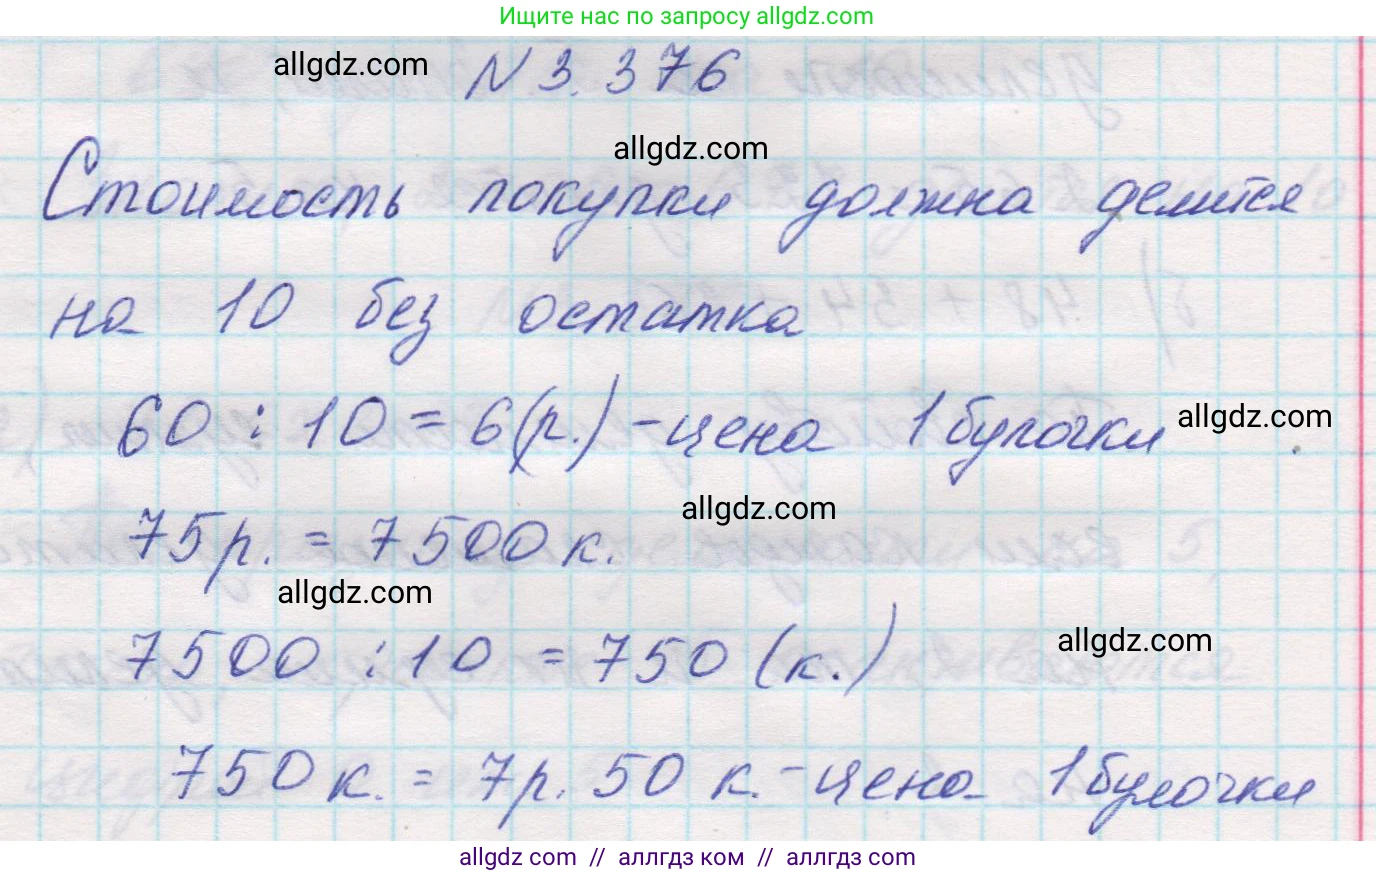 Ищите нас по запросу allgdz.com
allgdz.com
N 3.376
allgdz.com
Стоимость покупки должна делится
на 10 без остатка
60 : 10 = 6 (р.) - цена 1 булочки
allgdz.com
allgdz.com
75 р. = 7500 к.
allgdz.com
7500 : 10 = 750 (к.)
allgdz.com
750 к. = 7 р. 50 к. - цена 1 булочки
allgdz.com // аллгдз ком // аллгдз.com